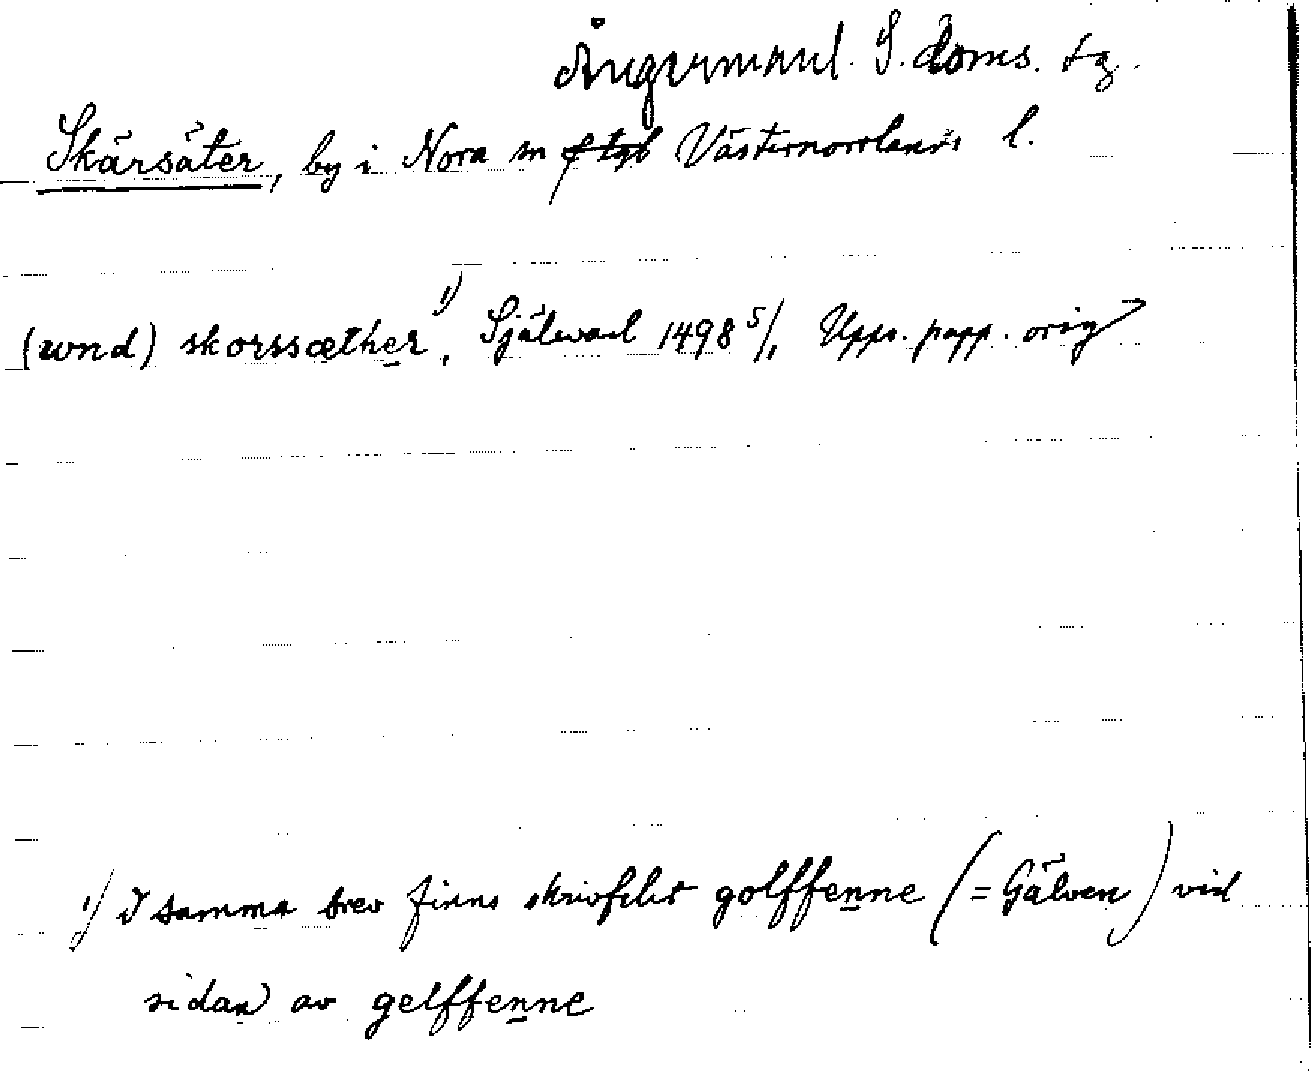 Ångermanl. S. doms. tg.
Skärsäter, by i Nora sn Västernorrlands l.
(wnd) skorssæther 1), Själevad 1498 5/1 Upps. papp. orig
1) I samma brev finns skrivfelet golffenne (= Gälven) vid
sidan av gelffenne